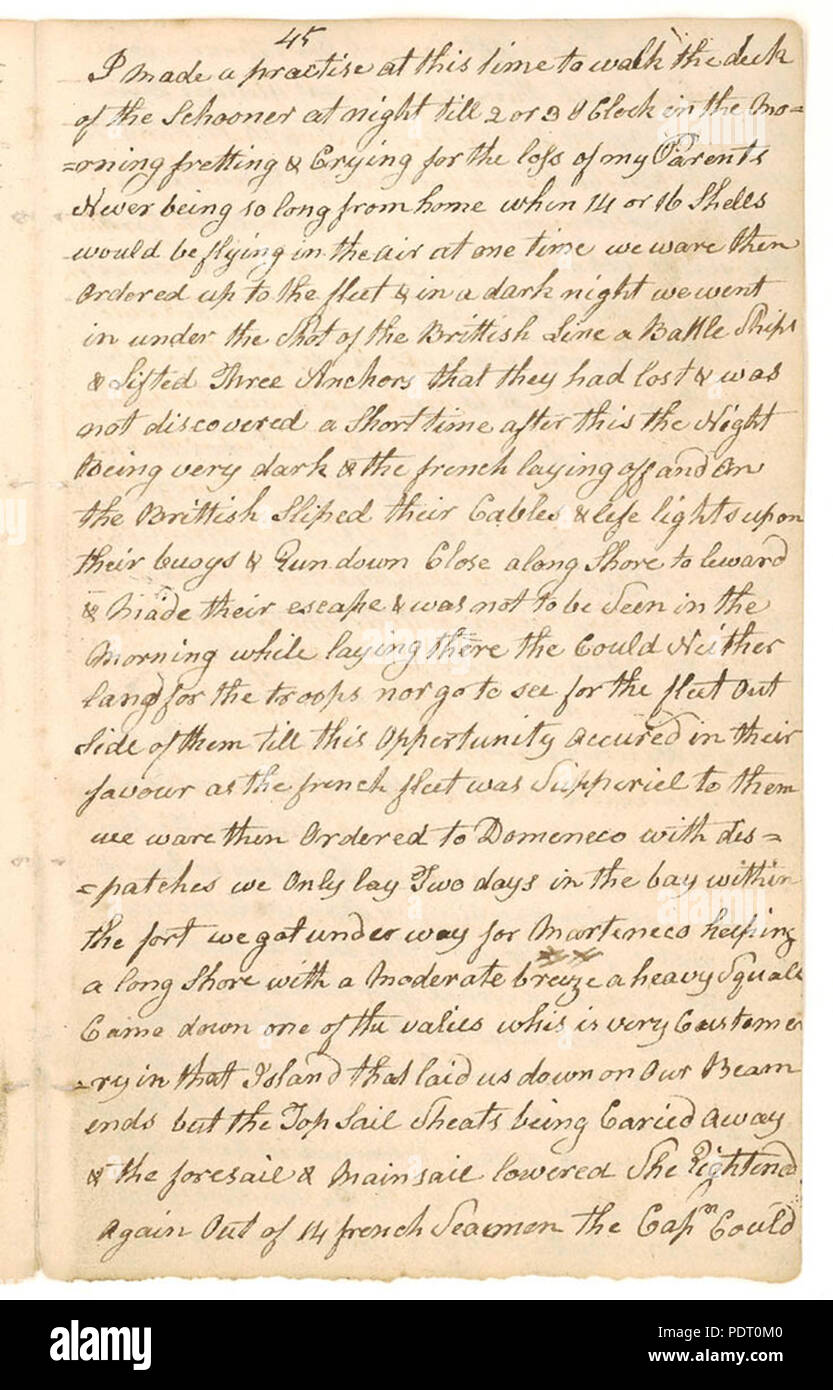 45
I made a practise at this time to walk the deck
of the Schooner at night till 2 or 3 O Clock in the Mo=
=orning fretting & Crying for the loss of my Parents
Never being so long from home when 14 or 16 Shells
would be flying in the air at one time we ware then
Ordered up to the fleet & in a dark night we went
in under the Shot of the Brittish Line a Battle Ships
& Lifted Three Anchors that they had lost & was
not discovered a Short time after this the Night
Being very dark & the french laying off and On
the Brittish Sliped their Cables & left lights upon
their buoys & Run down Close along Shore to leward
& Made their escape & was not to be Seen in the
Morning while laying there the Could Neither
land for the troops nor go to see for the fleet Out
Side of them till this Opportunity accured in their
favour as the french fleet was Supperiel to them
we ware then Ordered to Domeneco with des=
=patches we Only lay Two days in the bay within
the fort we got under way for Marteneco keeping
a long Shore with a Moderate breeze a heavy Squall
Came down one of the valies whis is very Custome
=ry in that Island that laid us down on Our Beam
ends but the Top Sail Sheats being Caried away
& the foresail & Mainsail lowered She Rightened
Again Out of 14 french Seamen the Capn Could
alamy
Image ID: PDT0M0
www.alamy.com